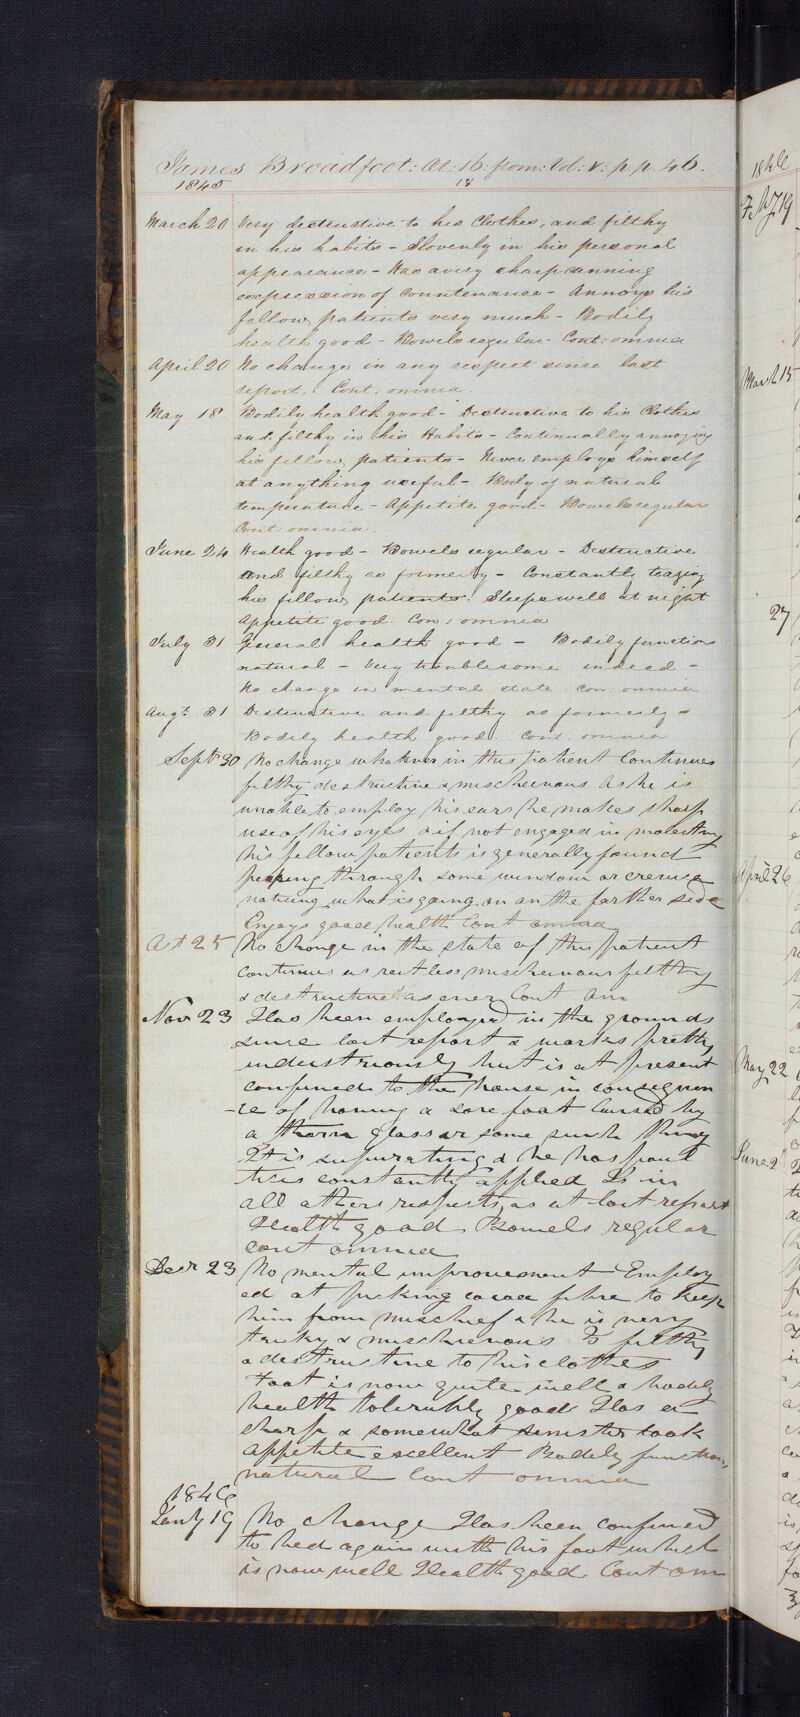 James Broadfoot: Æt: 16: from: Vol: V: p. p. 46.
1845
18
March 20 Very destructive to his Clothes, and filthy
in his habits - Slovenly in his personal
appearance - Has a very sharp cunning
expression of Countenance - Annoys his
fellow patients very much - Bodily
health good - Bowels regular Cont: omnia
April 20 No change in any respect since last
report. Cont. omnia.
May 18 Bodily health good - Destructive to his Clothes
and filthy in his Habits - Continually annoying
his fellow patients - Never employs himself
at anything useful - Body of natural
temperature - Appetite good - Bowels regular
Cont. omnia.
June 24 Health good - Bowels regular - Destructive
and filthy as formerly - Constantly teazing
his fellow patients. Sleeps well at night
Appetite good. Con: omnia
July 31 General health good - Bodily functions
natural - Very troublesome indeed -
No change in mental state. Con. omnia
Augt. 31 Destructive and filthy as formerly -
Bodily health good. Cont. omnia
Sept 30 No change whatever in this patient Continues
filthy destructive & mischeivous As he is
unable to employ his ears he makes sharp
use of his eyes & if not engaged in molesting
his fellow patients is generally found
peeping through some window or crevice
noticing what is going on on the farther side
Enjoys good health Cont omnia
Oct 25 No change in the state of this patient
Continues as restless mischeivous filthy
& destructive as ever Cont Om
Nov 23 Has been employed in the grounds
since last report & works pretty
industriously but is at present
confined to the house in consequen
-ce of having a sore foot Caused by
a thorn glass or some such thing
It is supurating & he has poul
tices constantly applied Is in
all others respects as at last report
Health good Bowels regular
cont omnia
Decr 23 No mental improvement Employ
ed at picking cocoa fibre to keep
him from mischief & he is very
tricky & mischievous Is filthy
& destructive to his clothes
Foot is now quite well & bodily
health tolerably good Has a
sharp & somewhat sinister look
Appetite excellent Bodily functions
natural Cont omnia
1846
Jany 19 No change Has been confined
to bed again with his foot which
is now well Health good Cont om
1846
Feby 19
March 15
27
April 26
May 22
June 2